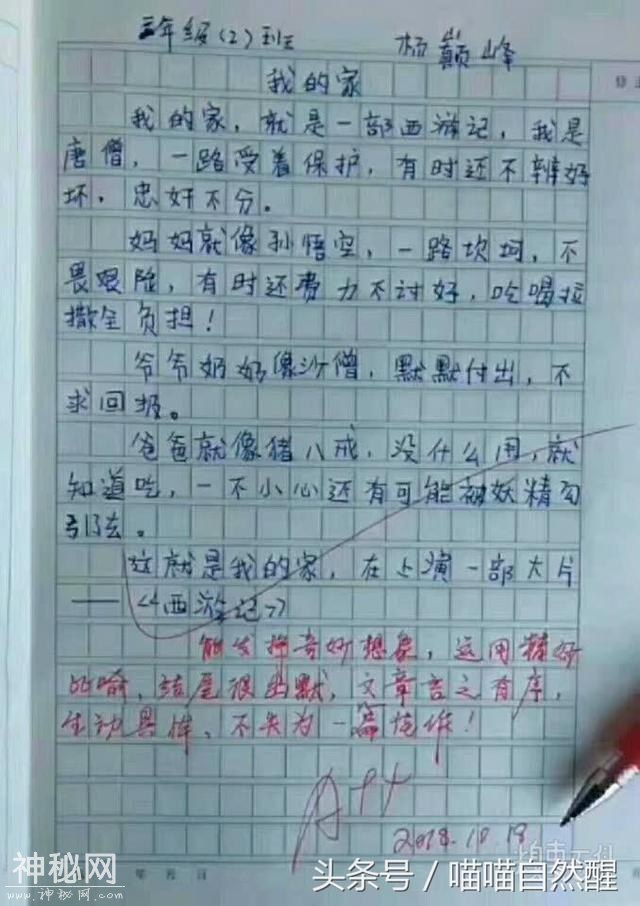 三年级(2)班 杨巅峰
我的家
我的家，就是一部西游记，我是
唐僧，一路受着保护，有时还不辨好
坏，忠奸不分。
妈妈就像孙悟空，一路坎坷，不
畏艰险，有时还费力不讨好，吃喝拉
撒全负担！
爷爷奶奶像沙僧，默默付出，不
求回报。
爸爸就像猪八戒，没什么用，就
知道吃，一不小心还有可能被妖精勾
引去。
这就是我的家，在上演一部大片
——《西游记》
能发挥奇妙想象，运用精妙
比喻，结尾很幽默，文章言之有序，
生动具体，不失为一篇佳作！
A++
2018.10.18
神秘网
www.神秘网.com
头条号／喵喵自然醒